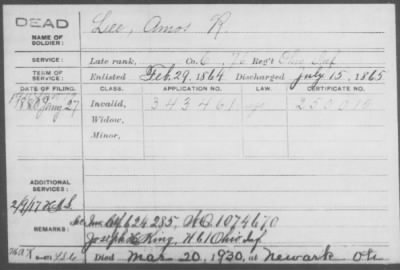 DEAD
NAME OF SOLDIER:
Lee, Amos R.
SERVICE:
Late rank, Co. C, 76 Reg't Ohio Inf
TERM OF SERVICE:
Enlisted Feb. 29, 1864 Discharged July 15, 1865
DATE OF FILING. CLASS. APPLICATION NO. LAW. CERTIFICATE NO.
1880 27 Invalid, 343461 250019
Widow,
Minor,
ADDITIONAL SERVICES:
2/9/17
REMARKS:
624285, 1074670
Joseph King, H 61 Ohio Inf
Died Mar 20, 1930, at Newark O